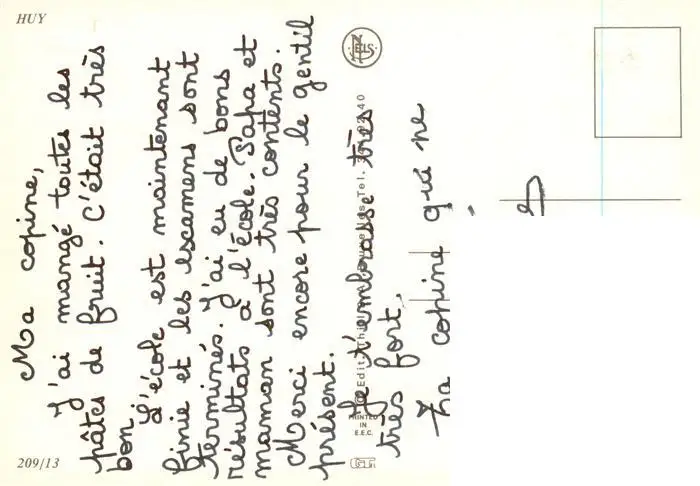 HUY
Ma copine,
J'ai mangé toutes les
pâtes de fruit. C'était très
bon
L'école est maintenant
finie et les escamens sont
terminés. J'ai eu de bons
résultats à l'école. Papa et
maman sont très contents.
Merci encore pour le gentil
présent.
Je t'embrasse très
très fort,
Ta copine qui ne
209/13
PRINTED
IN
E.E.C.